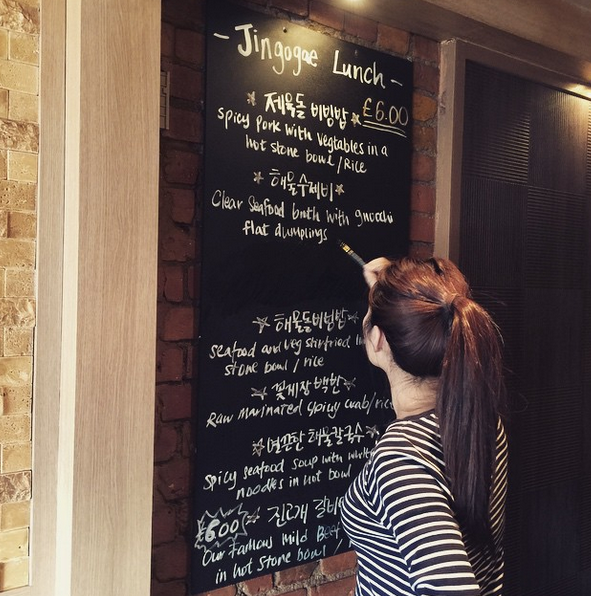 - Jingogae Lunch -
제육돌 비빔밥 £6.00
Spicy Pork with Vegtables in a
hot stone bowl / Rice
해물수제비
Clear Seafood broth with gnocchi
flat dumplings
해물돌비빔밥
Seafood and veg stirfried in
stone bowl / rice
꽃게장 백반
Raw Marinated spicy crab/rice
해물칼국수
Spicy seafood soup with
noodles in hot bowl
£6.00 진고개
Our Famous mild Beef
in hot stone bowl /